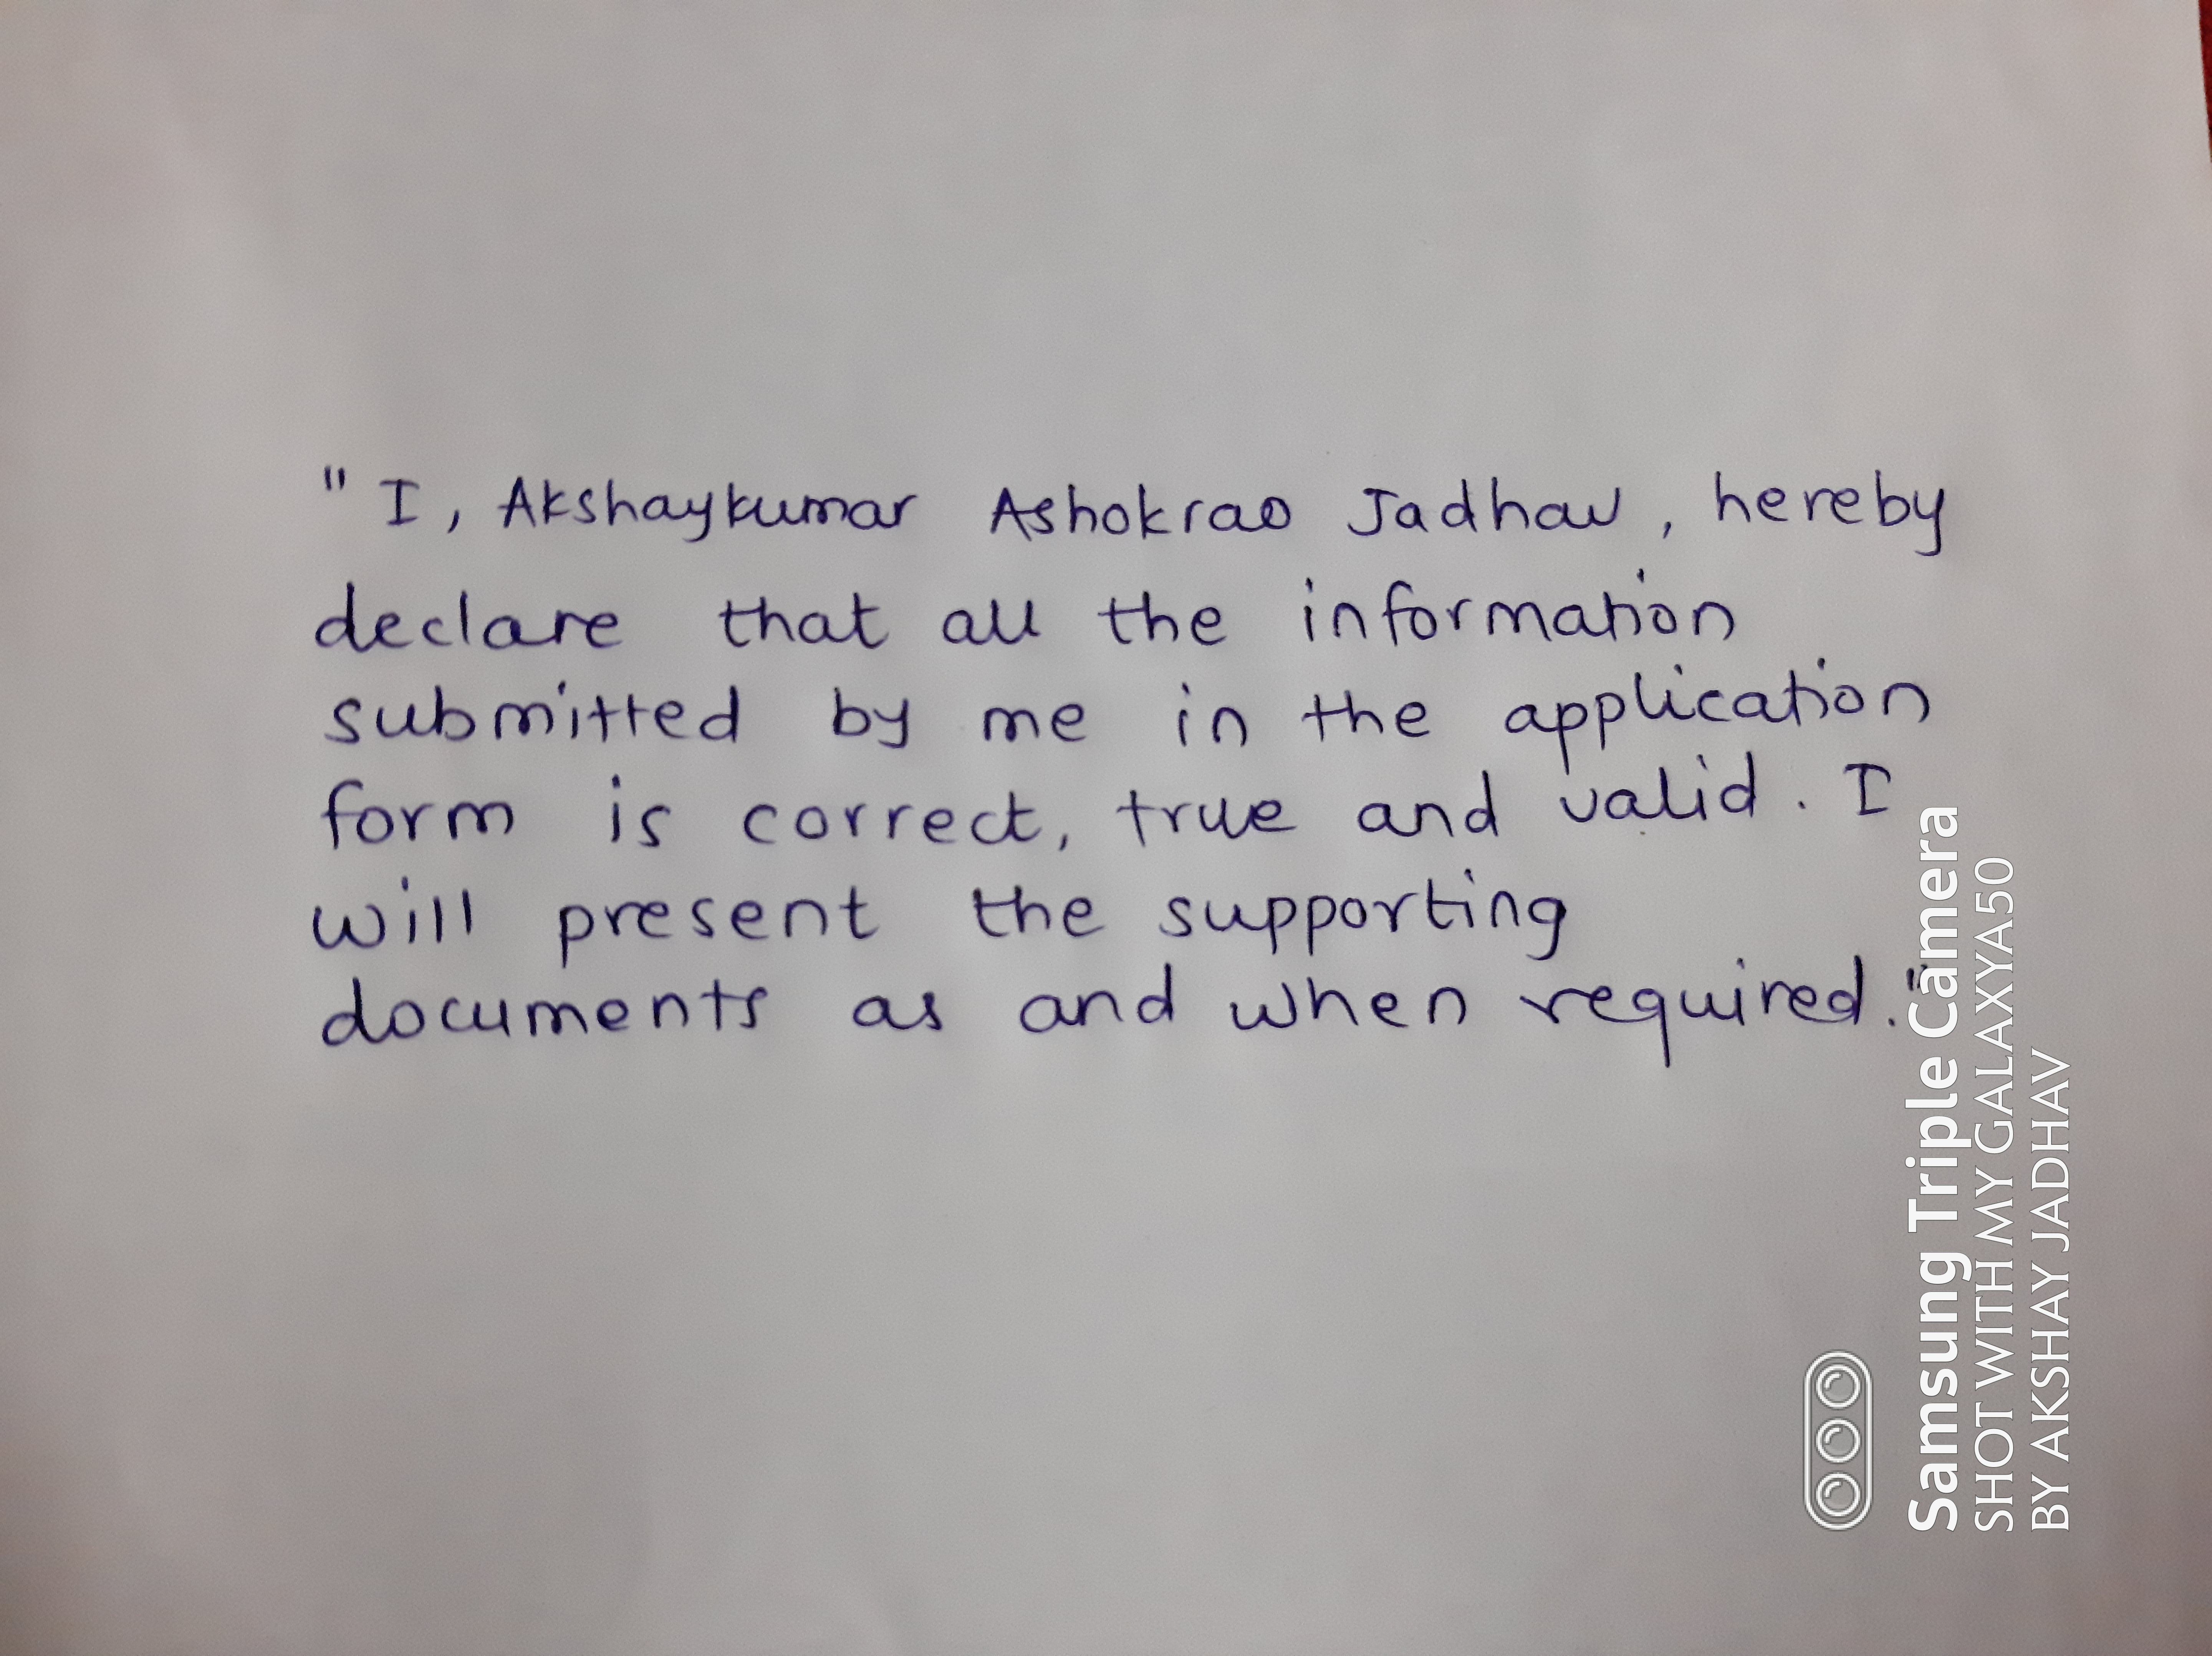 "I, Akshaykumar Ashokrao Jadhav, hereby
declare that all the information
submitted by me in the application
form is correct, true and valid. I
will present the supporting
documents as and when required."
Samsung Triple Camera
SHOT WITH MY GALAXYA50
BY AKSHAY JADHAV